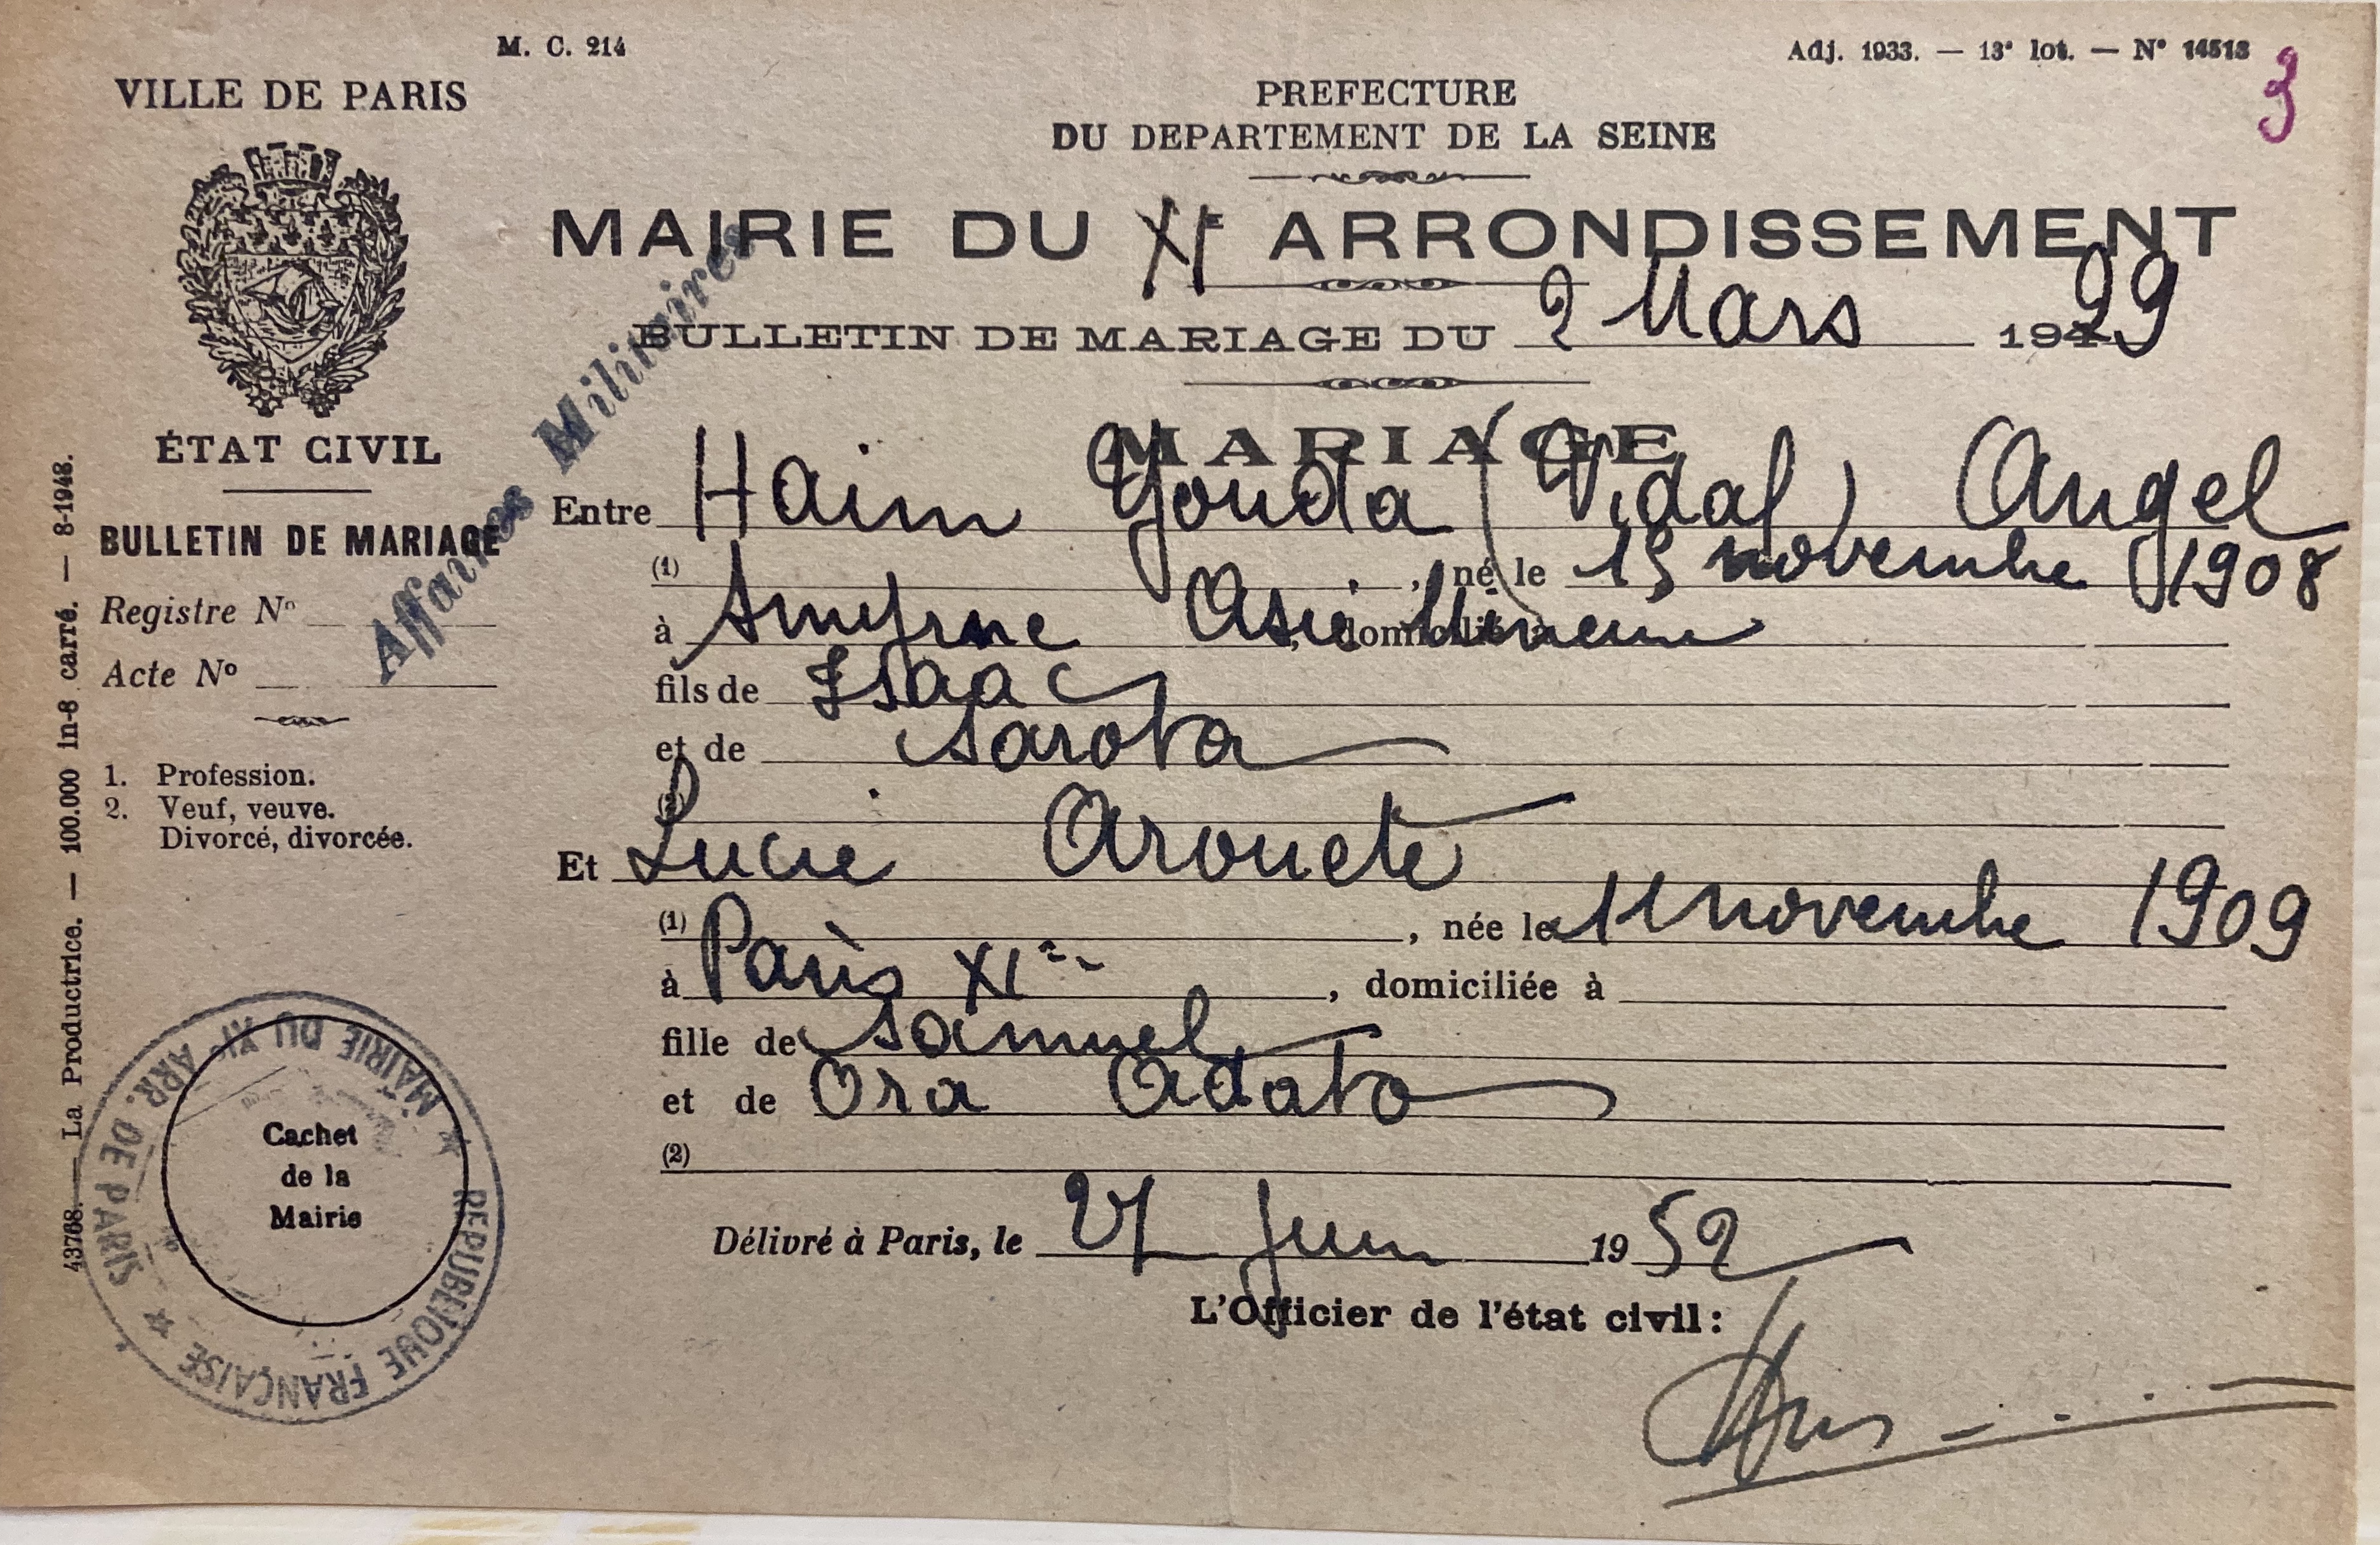 M. C. 214
Adj. 1933. — 13e lot. — No 14513
3
VILLE DE PARIS
PREFECTURE
DU DEPARTEMENT DE LA SEINE
MAIRIE DU XIe ARRONDISSEMENT
BULLETIN DE MARIAGE DU 2 Mars 1929
MARIAGE
ÉTAT CIVIL
BULLETIN DE MARIAGE
Registre No
Acte No
1. Profession.
2. Veuf, veuve.
Divorcé, divorcée.
Affaires Militaires
Entre Haim Youda (Vidal) Angel
(1) , né le 15 novembre 1908
à Smyrne Asie Mineure , domicilié à
fils de Isaac
et de Sarota
(2)
Et Lucie Arouete
(1) , née le 11 novembre 1909
à Paris XIe , domiciliée à
fille de Samuel
et de Ora Adato
(2)
Délivré à Paris, le 27 Juin 1952
L'Officier de l'état civil:
Cachet
de la
Mairie
MAIRIE DU XIe ARR. DE PARIS
REPUBLIQUE FRANÇAISE
43768. — La Productrice. — 100.000 in-8 carré. — 8-1948.